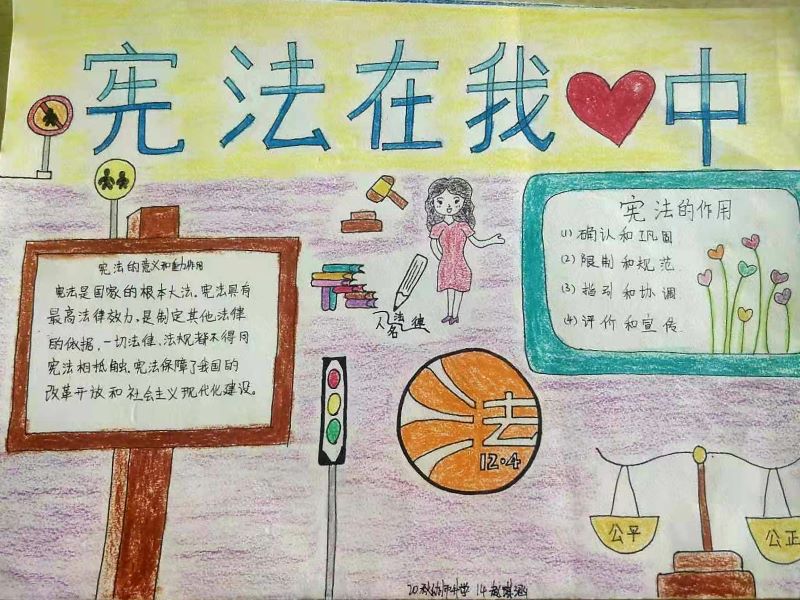 宪法在我中
宪法的意义和重力作用
宪法是国家的根本大法、宪法具有
最高法律效力,是制定其他法律
的依据,一切法律、法规都不得同
宪法相抵触、宪法保障了我国的
改革开放和社会主义现代化建设。
法律
宪法的作用
(1) 确认和巩固
(2) 限制和规范
(3) 指引和协调
(4) 评价和宣传
法
12·4
公平
公正